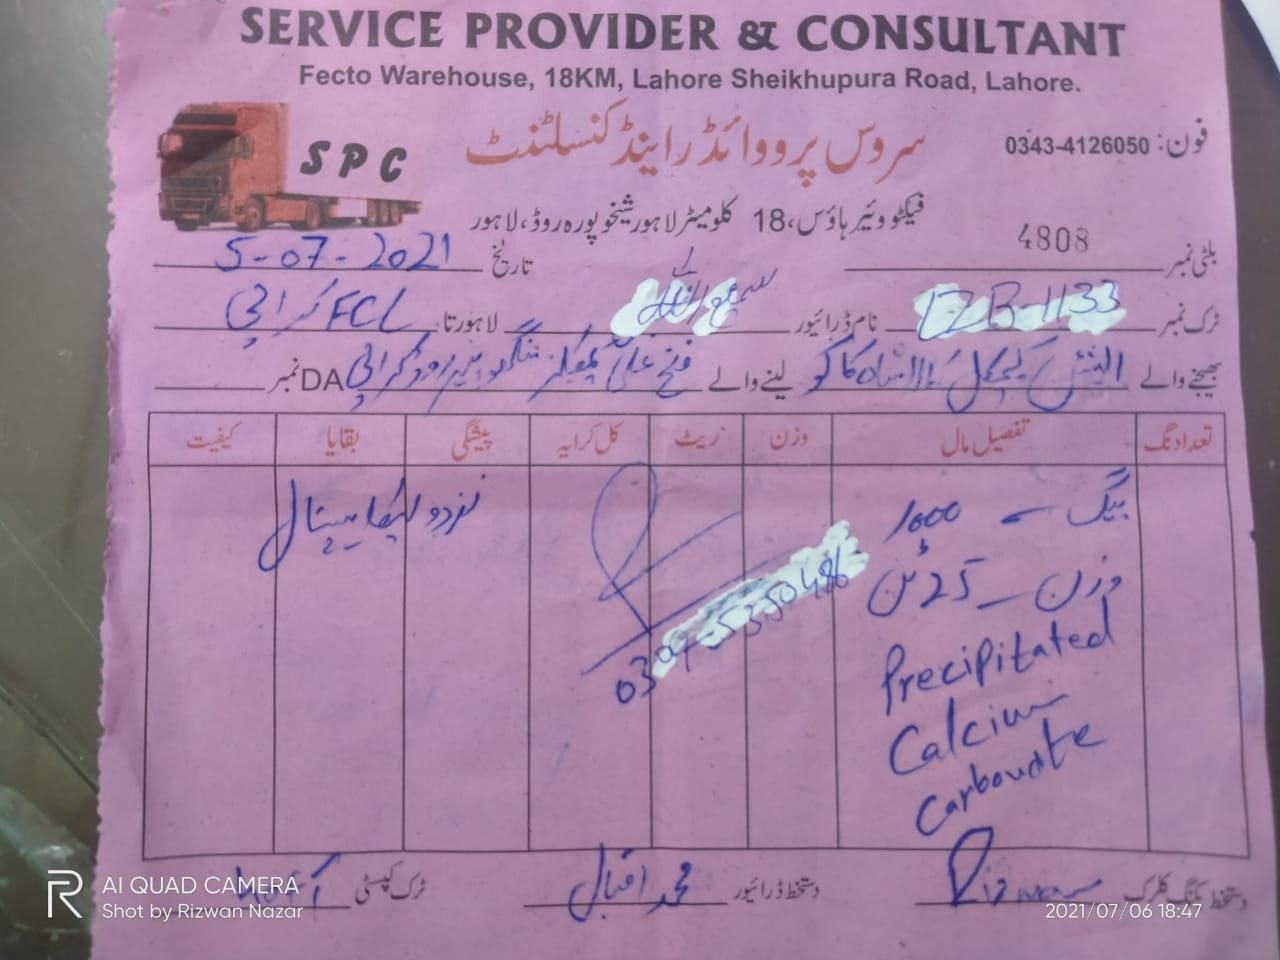 SERVICE PROVIDER & CONSULTANT
Fecto Warehouse, 18KM, Lahore Sheikhupura Road, Lahore.
SPC
سروس پرووائڈر اینڈ کنسلٹنٹ
فون: 0343-4126050
فیکٹو ویئر ہاؤس، 18 کلومیٹر لاہور شیخوپورہ روڈ، لاہور
بلٹی نمبر 4808 تاریخ 5-07-2021
ٹرک نمبر نام ڈرائیور سمیع اللہ لاہور تا FCL کراچی
بھیجنے والے لینے والے فتح علی کیمیکلز کراچی DA نمبر
تعداد نگ تفصیل مال وزن ریٹ کل کرایہ پیشگی بقایا کیفیت
بیگ - 1000
نزد و ہسپتال
وزن - 25 ٹن
Precipitated
Calcium
Carbonate
دستخط بکنگ کلرک Rizwan دستخط ڈرائیور محمد اقبال ٹرک کپسٹی
AI QUAD CAMERA
Shot by Rizwan Nazar
2021/07/06 18:47